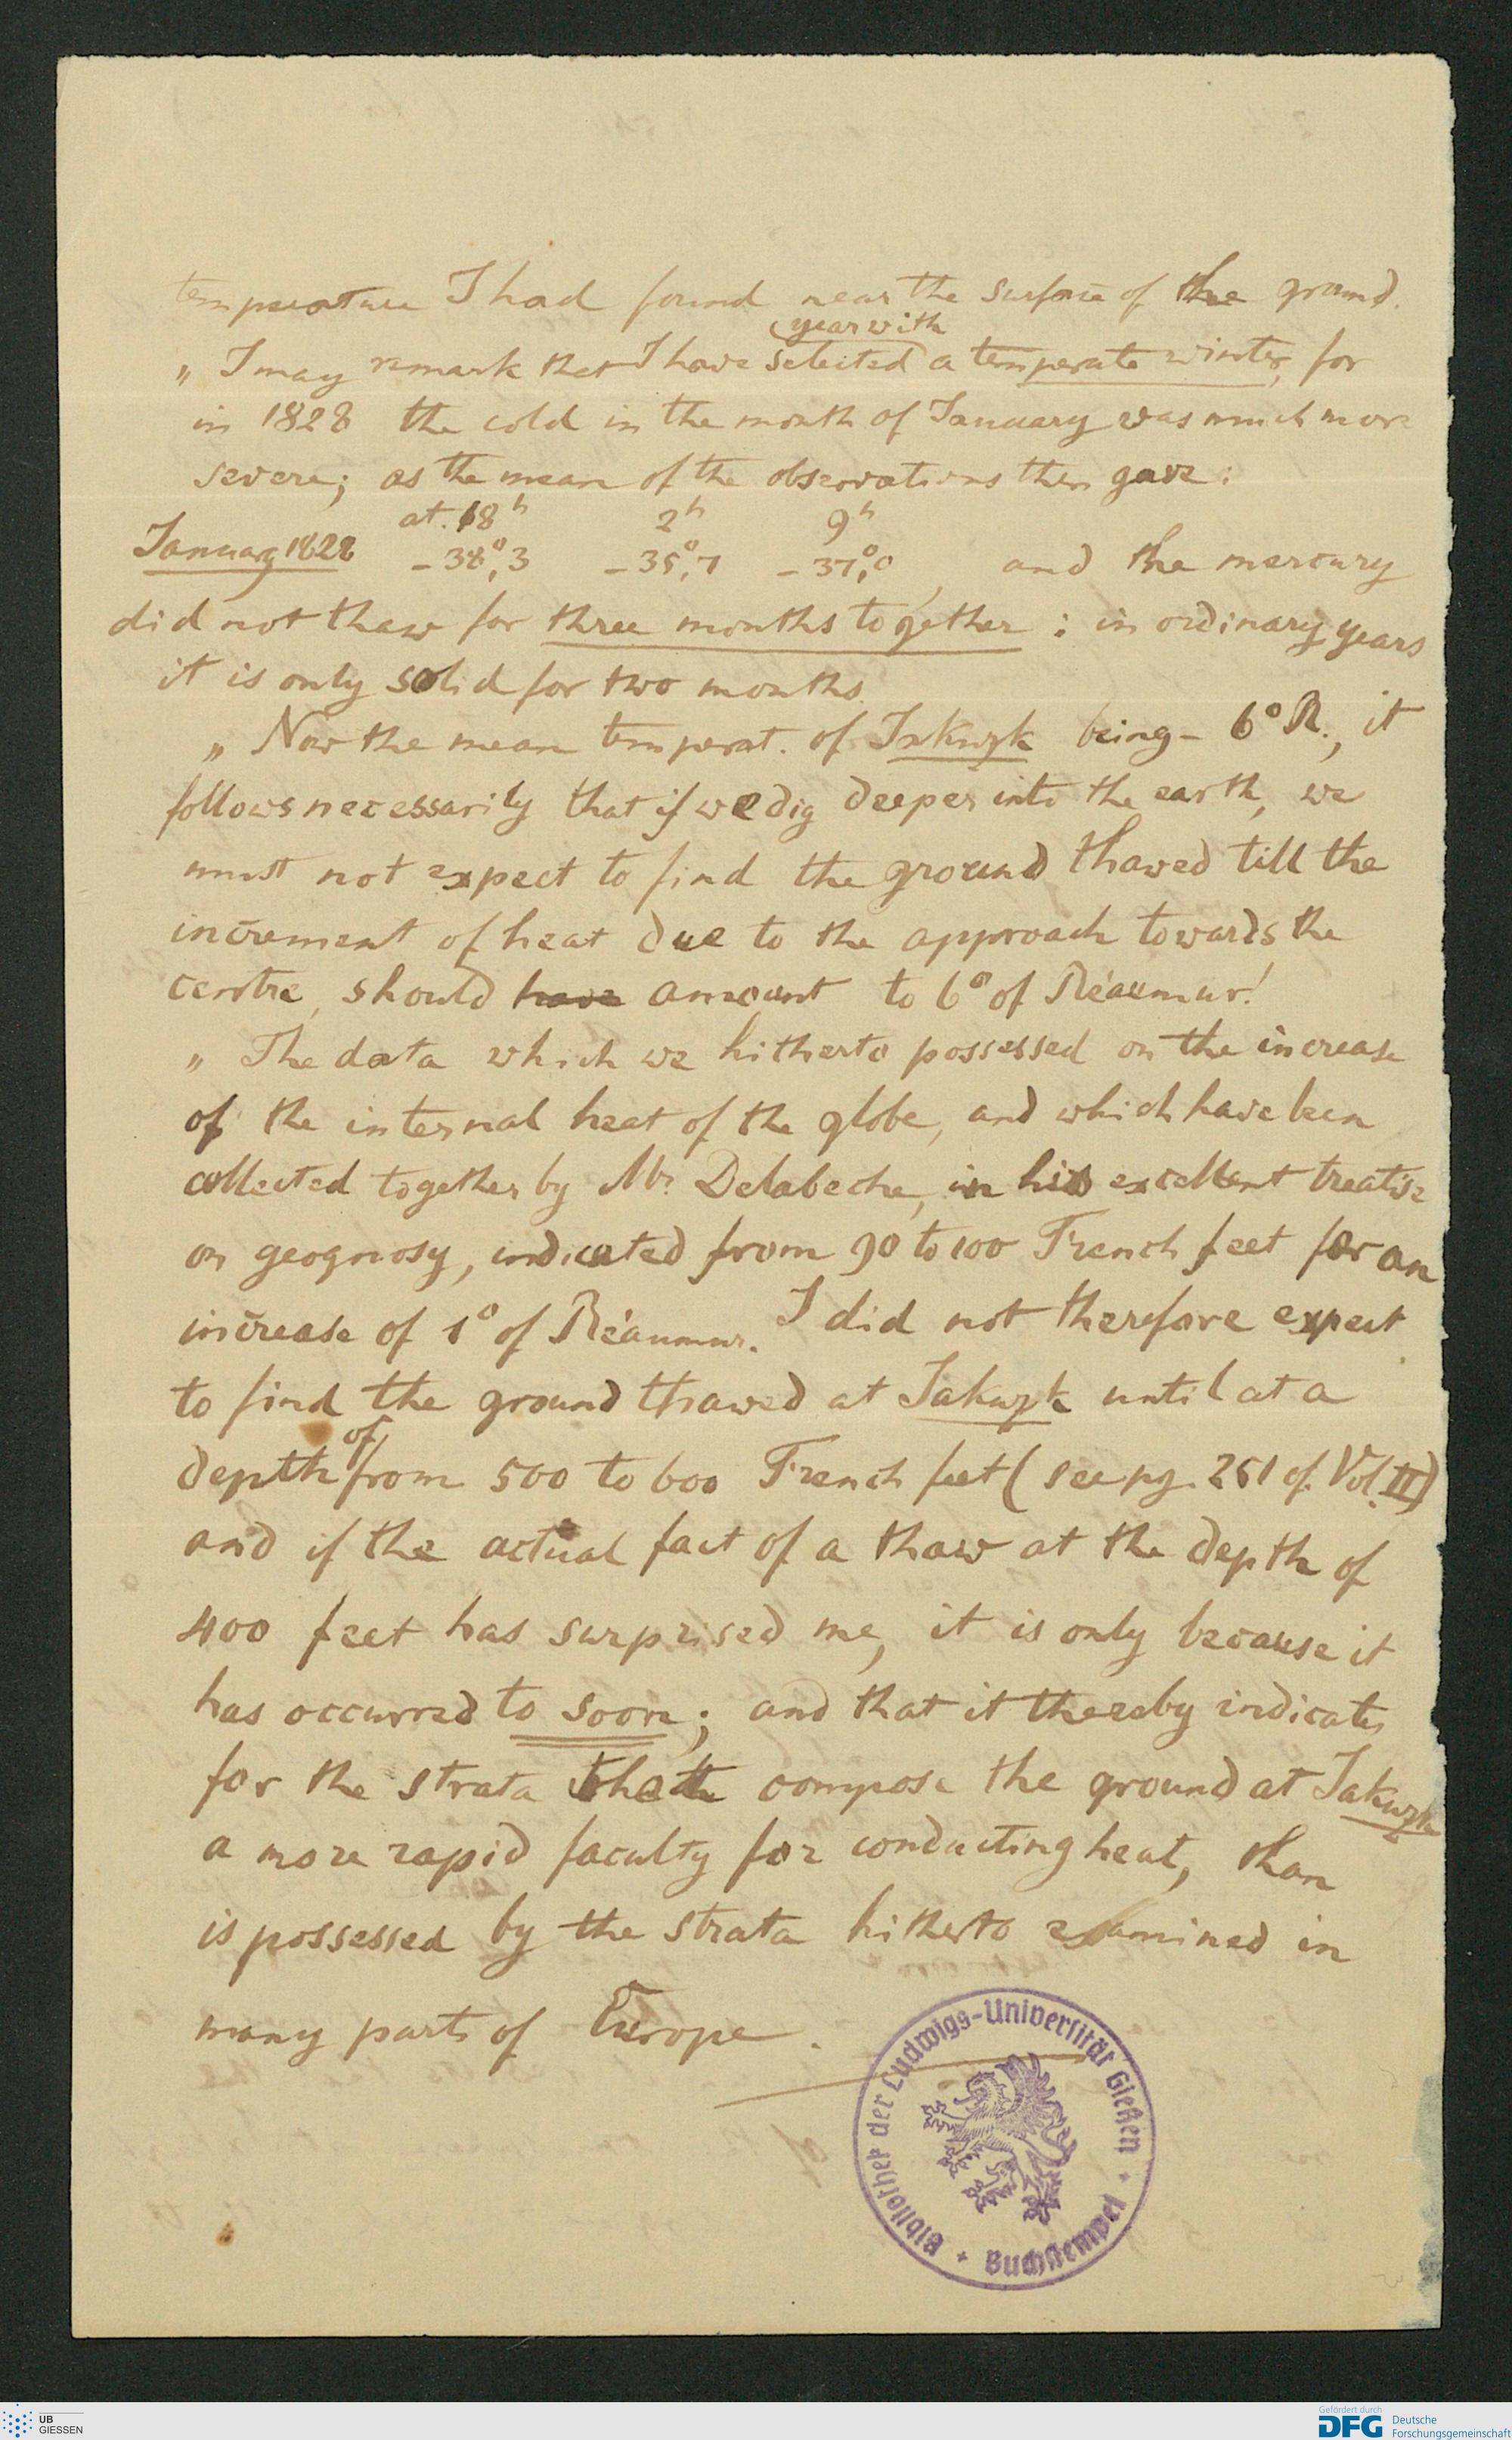 temperature I had found near the surface of the ground.
year with
„ I may remark that I have selected a temperate winter, for
in 1828 the cold in the month of January was much more
severe; as the mean of the observations then gave:
at. 18h 2h 9h
January 1828 – 38°,3 – 35°,7 – 37,°0, and the mercury
did not thaw for three months together : in ordinary years
it is only solid for two months.
„ Now the mean temperat. of Jakuzk being – 6° R., it
follows necessarily that if we dig deeper into the earth, we
must not expect to find the ground thawed till the
increment of heat due to the approach towards the
centre, should have amount to 6° of Réaumur!
„ The data which we hitherto possessed on the increase
of the internal heat of the globe, and which have been
collected together by Mr. Delabeche, in his excellent treatise
on geognosy, indicated from 90 to 100 French feet for an
increase of 1° of Réaumur. I did not therefore expect
to find the ground thawed at Jakuzk until at a
of
depth from 500 to 600 French feet ( see pg. 251 of. Vol. II)
and if the actual fact of a thaw at the depth of
400 feet has surprised me, it is only because it
has occurred to soon; and that it thereby indicates
for the strata that compose the ground at Jakuzk
a more rapid faculty for conducting heat, than
is possessed by the strata hitherto examined in
many parts of Europe.
Bibliothek der Ludwigs-Universität Gießen
Buchstempel
UB
GIESSEN
Gefördert durch
DFG Deutsche
Forschungsgemeinschaft